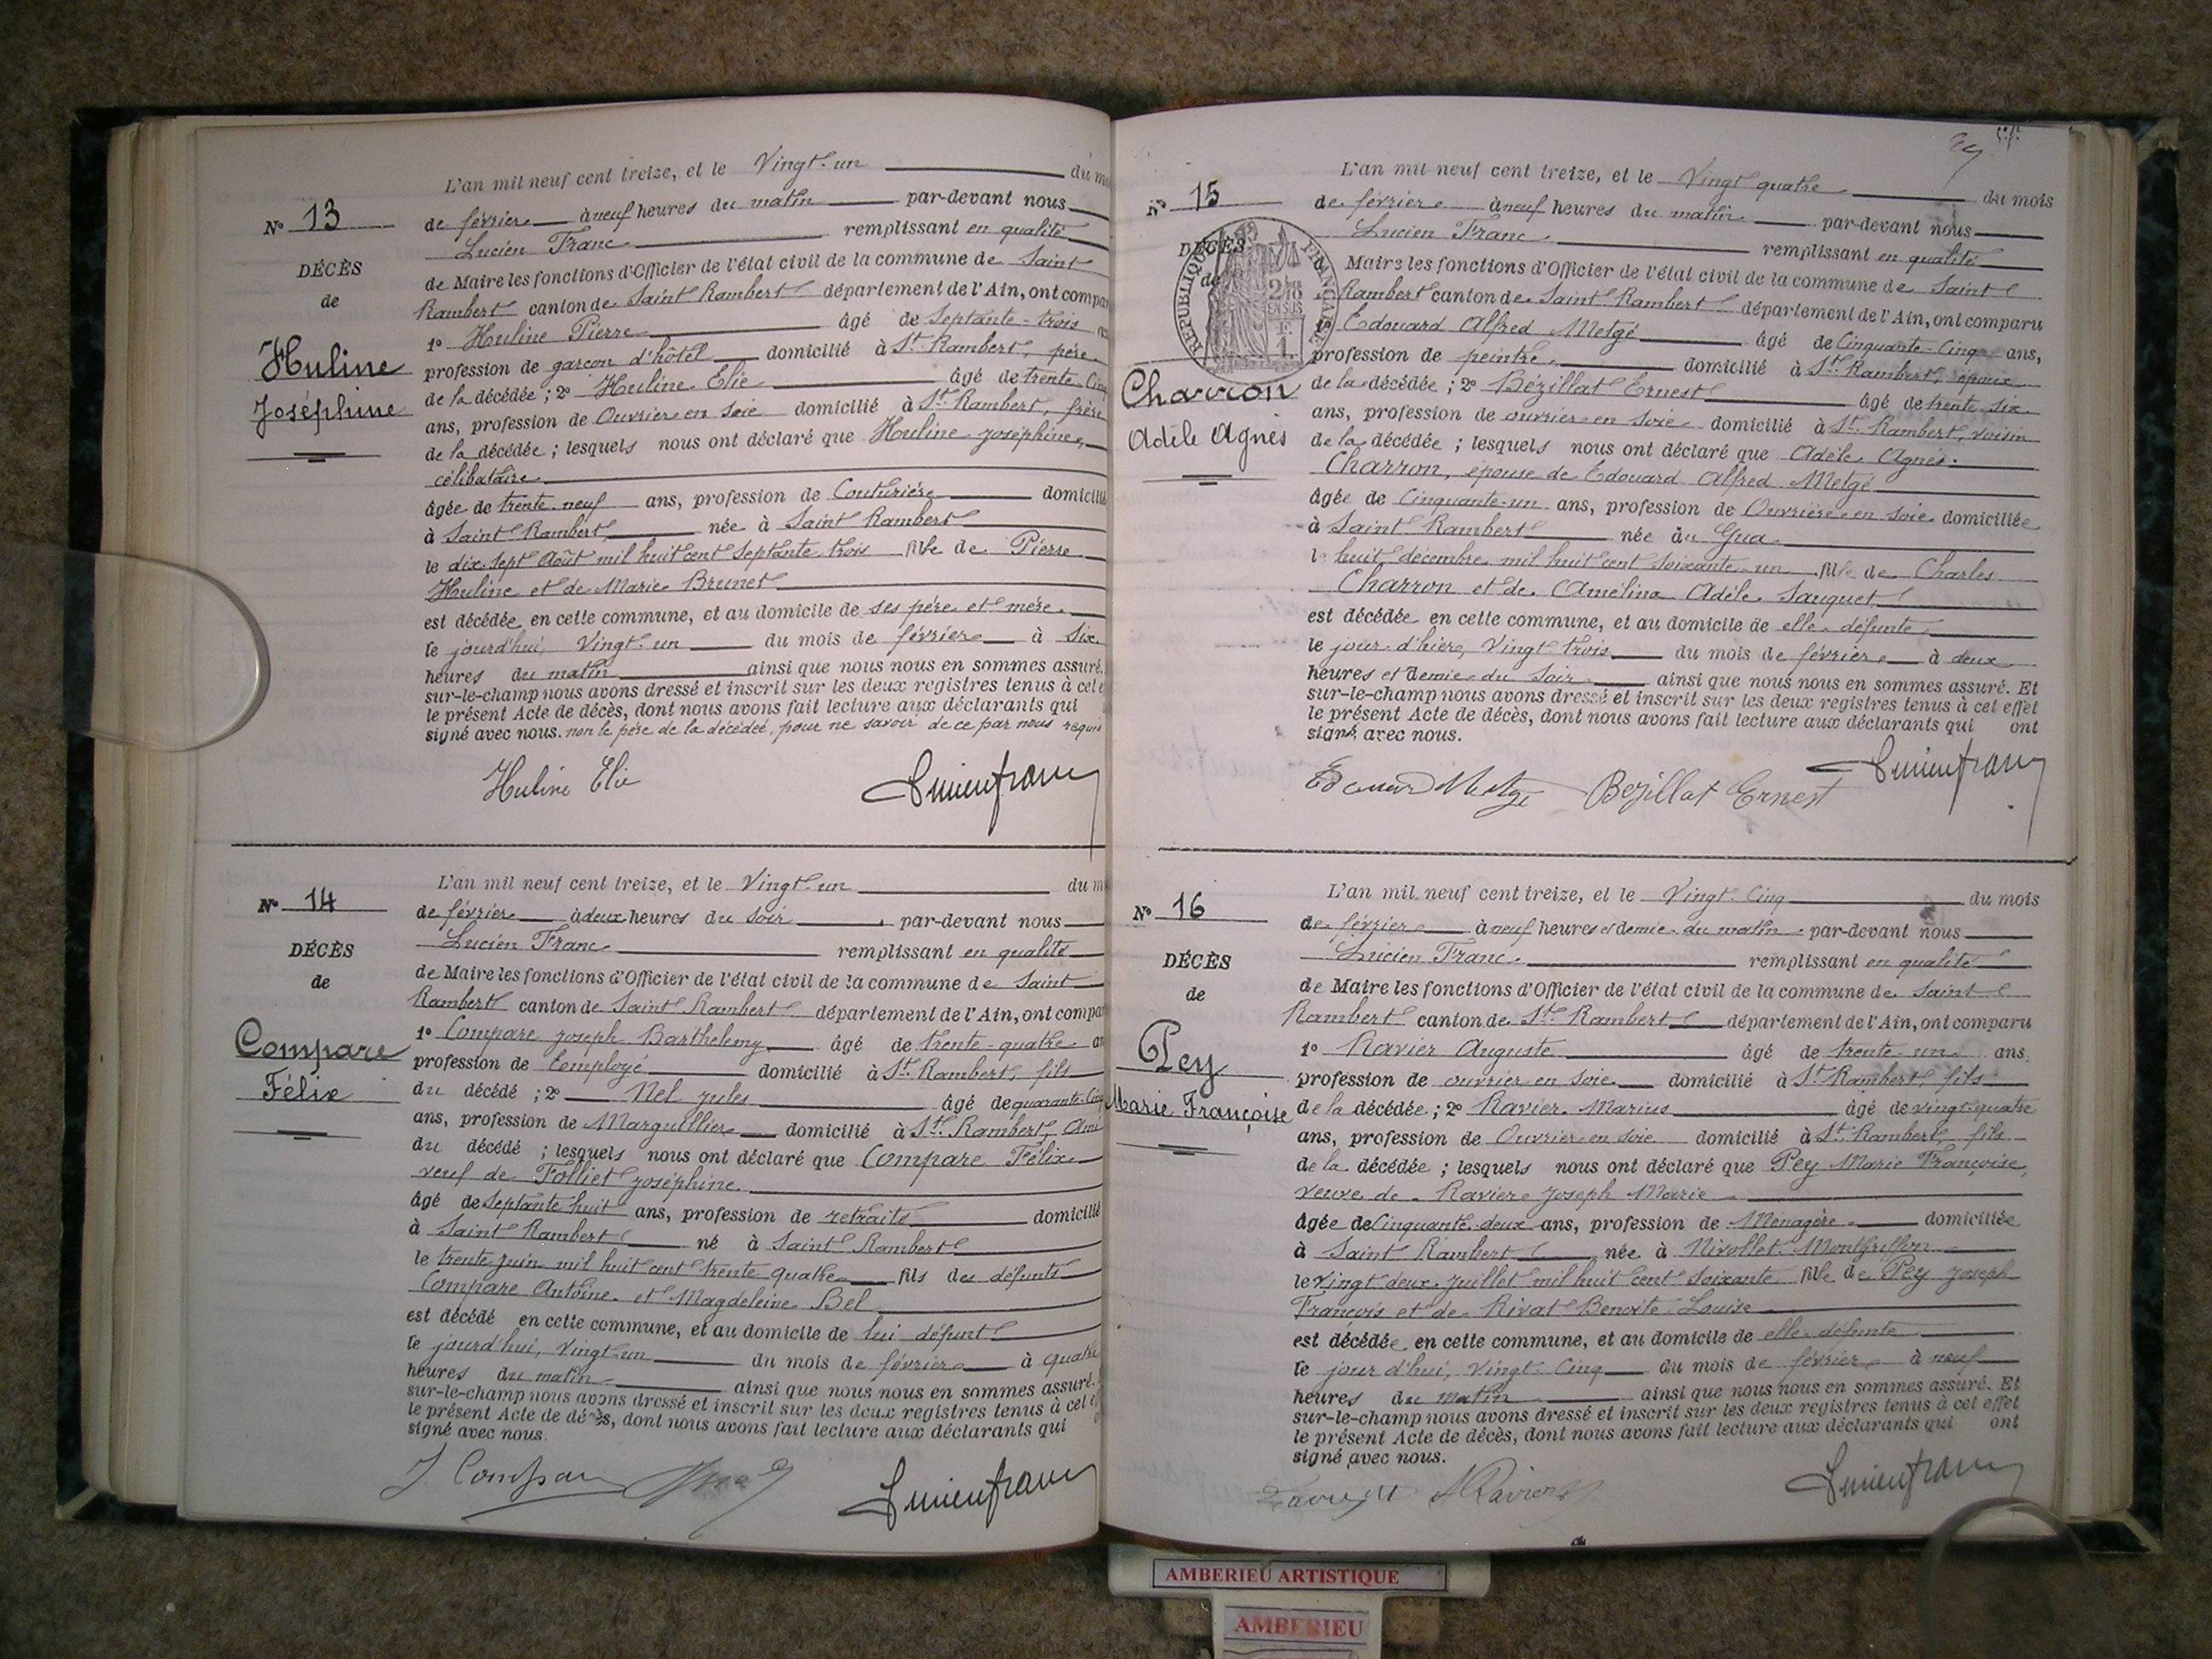 L'an mil neuf cent treize, et le Vingt-un du
N° 13
de février à neuf heures du matin par-devant nous
Lucien Franc remplissant en qualité
DÉCÈS
de Maire les fonctions d'Officier de l'état civil de la commune de Saint
de
Rambert canton de Saint Rambert département de l'Ain, ont compa
1° Huline Pierre âgé de Septante-trois
Huline
Joséphine
profession de garçon d'hôtel domicilié à St. Rambert, père
de la décédée ; 2° Huline Elie âgé de trente Cinq
ans, profession de Ouvrier en Soie domicilié à St. Rambert, frère
de la décédée ; lesquels nous ont déclaré que Huline Joséphine,
célibataire
âgée de trente-neuf ans, profession de Couturière domicilié
à Saint Rambert, née à Saint Rambert
le dix-sept Août mil huit cent Septante-trois fille de Pierre
Huline et de Marie Brunet
est décédée en cette commune, et au domicile de ses père et mère
le jourd'hui, Vingt-un du mois de février à Six
heures du matin ainsi que nous nous en sommes assuré.
sur-le-champ nous avons dressé et inscrit sur les deux registres tenus à cet e
le présent Acte de décès, dont nous avons fait lecture aux déclarants qui
signé avec nous. non le père de la décédée, pour ne savoir de ce par nous requis
Huline Elie Lucien franc
L'an mil neuf cent treize, et le Vingt-un du m
N° 14
de février à deux heures du soir par-devant nous
Lucien Franc remplissant en qualité
DÉCÈS
de Maire les fonctions d'Officier de l'état civil de la commune de Saint
de
Rambert canton de Saint Rambert département de l'Ain, ont compa
1° Compare Joseph Barthelemy âgé de trente-quatre an
Compare
Félix
profession de Employé domicilié à St. Rambert, fils
du décédé ; 2° Nel Jules âgé de quarante-Cinq
ans, profession de Marguillier domicilié à St. Rambert, Ami
du décédé ; lesquels nous ont déclaré que Compare Félix
veuf de Folliet Joséphine
âgé de Septante huit ans, profession de retraité domicilié
à Saint Rambert né à Saint Rambert
le trente Juin mil huit cent trente quatre fils des défunts
Compare Antoine et Magdeleine Bel
est décédé en cette commune, et au domicile de lui défunt
le jourd'hui, Vingt-un du mois de février à quatre
heures du matin ainsi que nous nous en sommes assuré.
sur-le-champ nous avons dressé et inscrit sur les deux registres tenus à cet e
le présent Acte de décès, dont nous avons fait lecture aux déclarants qui
signé avec nous.
J. Compare Lucien franc
L'an mil neuf cent treize, et le Vingt quatre du mois
N° 15
de février à neuf heures du matin par-devant nous
Lucien Franc remplissant en qualité
DÉCÈS
de
RÉPUBLIQUE FRANÇAISE
de Maire les fonctions d'Officier de l'état civil de la commune de Saint
Rambert canton de Saint Rambert département de l'Ain, ont comparu
1° Edouard Alfred Metgé âgé de Cinquante-Cinq ans,
profession de peintre domicilié à St. Rambert, époux
Charron
Adèle Agnès
de la décédée ; 2° Bézillat Ernest âgé de trente six
ans, profession de ouvrier en soie domicilié à St. Rambert, voisin
de la décédée ; lesquels nous ont déclaré que Adèle Agnès
Charron, épouse de Edouard Alfred Metgé
âgée de Cinquante-un ans, profession de Ouvrière en soie domiciliée
à Saint Rambert née au Gua
le huit décembre mil huit cent soixante-un fille de Charles
Charron et de Amélina Adèle Sauquet
est décédée en cette commune, et au domicile de elle défunte,
le jour d'hier, Vingt trois du mois de février à deux
heures et demie du soir ainsi que nous nous en sommes assuré. Et
sur-le-champ nous avons dressé et inscrit sur les deux registres tenus à cet effet
le présent Acte de décès, dont nous avons fait lecture aux déclarants qui ont
signé avec nous.
Edouard Metgé Bézillat Ernest Lucien franc
L'an mil neuf cent treize, et le Vingt-Cinq du mois
N° 16
de février à neuf heures et demie du matin par-devant nous
Lucien Franc remplissant en qualité
DÉCÈS
de Maire les fonctions d'Officier de l'état civil de la commune de Saint
de
Rambert canton de St. Rambert département de l'Ain, ont comparu
1° Ravier Auguste âgé de trente-un ans
Pey
Marie Françoise
profession de ouvrier en soie domicilié à St. Rambert, fils
de la décédée ; 2° Ravier Marius âgé de vingt-quatre
ans, profession de Ouvrier en soie domicilié à St. Rambert, fils
de la décédée ; lesquels nous ont déclaré que Pey Marie Françoise,
veuve de Ravier Joseph Marie
âgée de Cinquante-deux ans, profession de Ménagère domiciliée
à Saint Rambert née à Nivollet-Montgriffon
le vingt deux Juillet mil huit cent soixante fille de Pey Joseph
François et de Rivat Benoite Louise
est décédée en cette commune, et au domicile de elle défunte
le jour d'hui, vingt-Cinq du mois de février à neuf
heures du matin ainsi que nous nous en sommes assuré. Et
sur-le-champ nous avons dressé et inscrit sur les deux registres tenus à cet effet
le présent Acte de décès, dont nous avons fait lecture aux déclarants qui ont
signé avec nous.
Lucien franc
AMBERIEU ARTISTIQUE
AMBERIEU